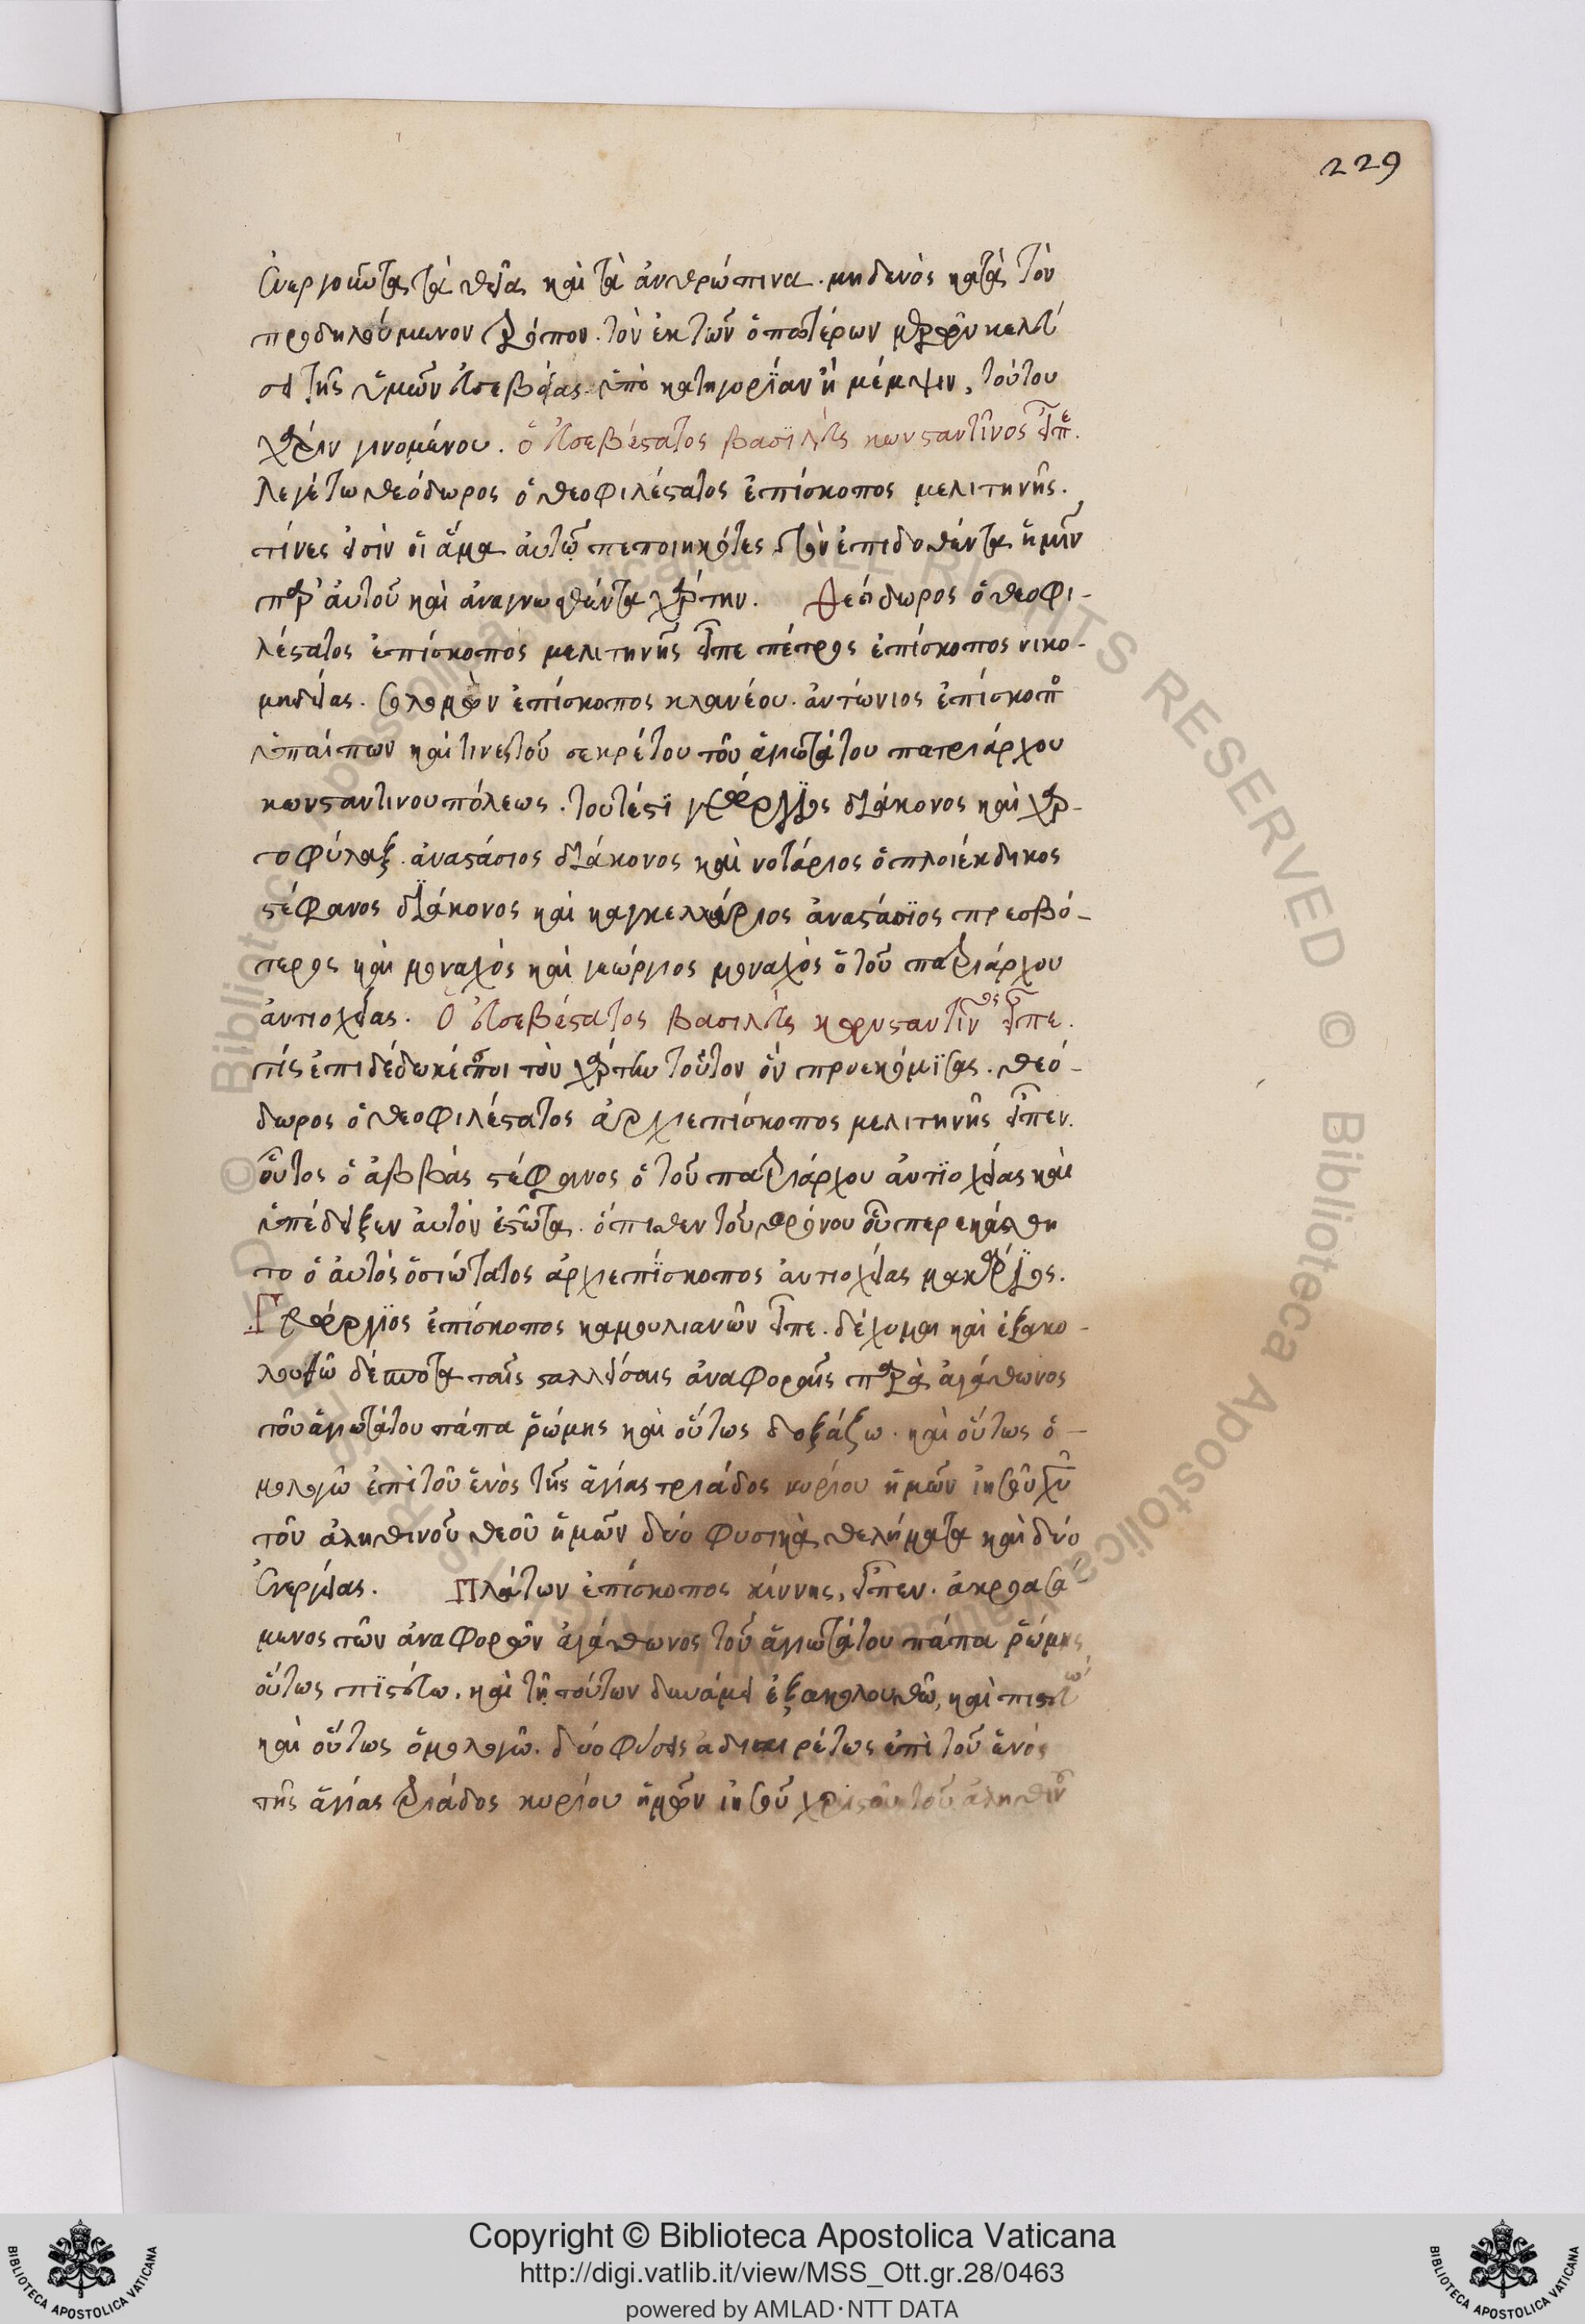 229
ἐνεργοῦντας τὰ θεῖα καὶ τὰ ἀνθρώπινα. μηδενὸς κατὰ τὸν
προδηλούμενον τρόπον. τὸν ἐκ τῶν
τῆς ὑμῶν εὐσεβείας ὑπὸ κατηγορίαν ἢ μέμψιν, τούτου
χάριν γινομένου. ὁ εὐσεβέστατος βασϊλεὺς κωνσταντῖνος εἶπε.
λεγέτω θεόδωρος ὁ θεοφιλέστατος ἐπίσκοπος μελιτηνῆς.
τίνες εἰσὶν οἱ ἅμα αὐτῷ πεποιηκότες τὸν ἐπιδοθέντα ἡμῖν
παρ' αὐτοῦ καὶ ἀναγνωσθέντα χάρτην. Θεόδωρος ὁ θεοφι-
λέστατος ἐπίσκοπος μελιτηνῆς εἶπε πέτρος ἐπίσκοπος νικο-
μηδείας. σολομὼν ἐπίσκοπος κλανέου. ἀντώνιος ἐπίσκοπος
ὑπαίπων καὶ τινες τοῦ σεκρέτου τοῦ ἁγιωτάτου πατριάρχου
κωνσταντινουπόλεως. τουτέστι γεώργϊος διάκονος καὶ χαρ-
τοφύλαξ. ἀναστάσιος διάκονος καὶ νοτάριος ὁ πλοιέκδικος
στέφανος διάκονος καὶ καγκελλάριος ἀναστάσϊος πρεσβύ-
τερος καὶ μοναχὸς καὶ γεώργιος μοναχὸς ὁ τοῦ πατριάρχου
ἀντιοχείας. Ὁ εὐσεβέστατος βασιλεὺς κωνσταντῖνος εἶπε.
τίς ἐπιδέδωκέ σοι τὸν χάρτην τοῦτον ὃν προεκόμϊσας. θεό-
δωρος ὁ θεοφιλέστατος ἀρχιεπίσκοπος μελιτηνῆς εἶπεν.
οὗτος ὁ ἀββᾶς στέφανος ὁ τοῦ πατριάρχου ἀντϊοχείας καὶ
ὑπέδειξεν αὐτὸν ἑστῶτα. ὄπισθεν τοῦ θρόνου οὗπερ ἐκάθη
το ὁ αὐτὸς ὁσιώτατος ἀρχιεπϊσκοπος ἀντιοχείας μακάριος.
Γεώργϊος ἐπίσκοπος καμουλιανῶν εἶπε. δέχομαι καὶ ἐξακο-
λουθῶ δέσποτα ταῖς σταλείσαις ἀναφοραῖς παρὰ ἀγάθωνος
τοῦ ἁγιωτάτου πάπα ῥώμης καὶ οὕτως δοξάζω. καὶ οὕτως ὁ-
μολογῶ ἐπὶ τοῦ ἑνὸς τῆς ἁγίας τριάδος κυρίου ἡμῶν ἰησοῦ χῦ
τοῦ ἀληθινοῦ θεοῦ ἡμῶν δύο φυσικὰ θελήματα καὶ δύο
ἐνεργείας. Πλάτων ἐπίσκοπος κίννης, εἶπεν. ἀκροασά-
μενος τῶν ἀναφορῶν ἀγάθωνος τοῦ ἁγιωτάτου πάπα ῥώμης
οὕτως πϊστεύω. καὶ τῇ τούτων δυνάμει ἐξακολουθῶ, καὶ πιστεύω
καὶ οὕτως ὁμολογῶ. δύο φύσεις ἀδιαιρέτως ἐπὶ τοῦ ἑνὸς
τῆς ἁγίας τριάδος κυρίου ἡμῶν ἰησοῦ χριστοῦ τοῦ ἀληθινοῦ
Copyright © Biblioteca Apostolica Vaticana
http://digi.vatlib.it/view/MSS_Ott.gr.28/0463
powered by AMLAD · NTT DATA